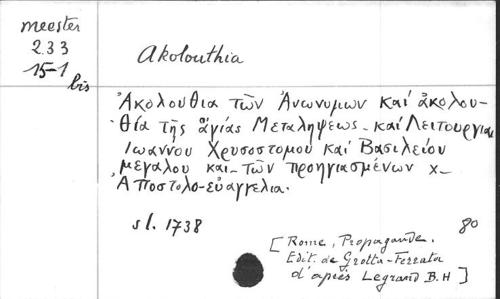 meester
233
15-1
bis
Akolouthia
Ἀκολουθια τῶν Ἀνωνυμων καί ἀκολου-
θία τῆς ἁγίας Μεταληψεως - καί Λειτουργιαι
Ιωαννου Χρυσοστομου καί Βασιλείου
μεγαλου και - τῶν προηγιασμένων χ -
Ἀποστολο-εὐαγγελια.
sl. 1738
80
[Rome, Propagande.
Edit. de Grotta-Ferrata
d'après Legrand B.H]